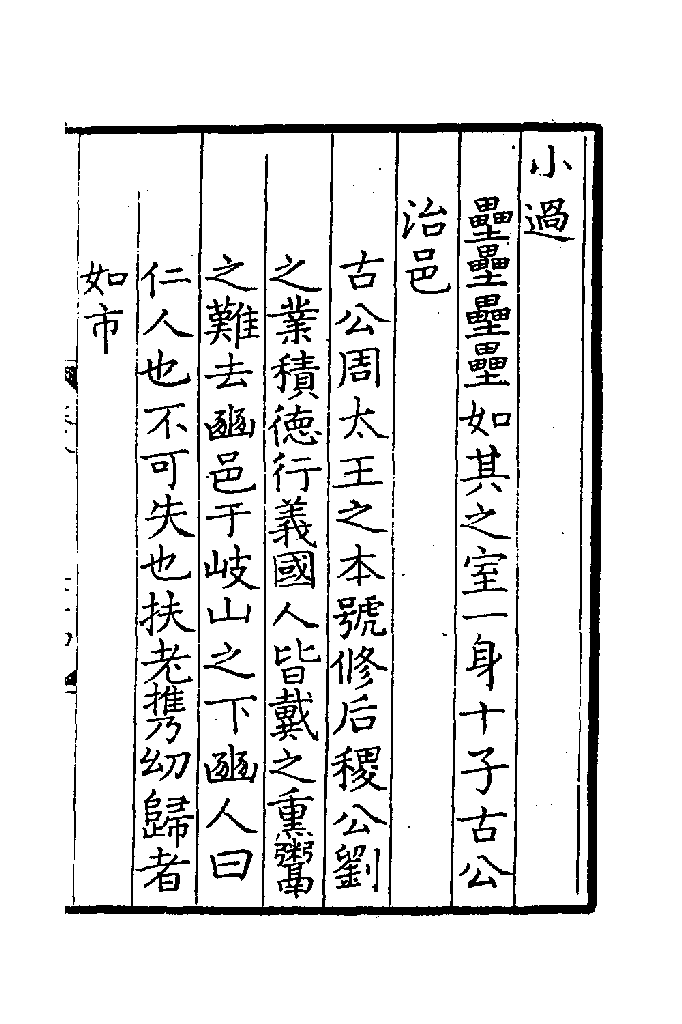 小過
壘壘壘壘如其之室一身十子古公
治邑
古公周太王之本號修后稷公劉
之業積德行義國人皆戴之熏鬻
之難去豳邑于岐山之下豳人曰
仁人也不可失也扶老攜幼歸者
如市